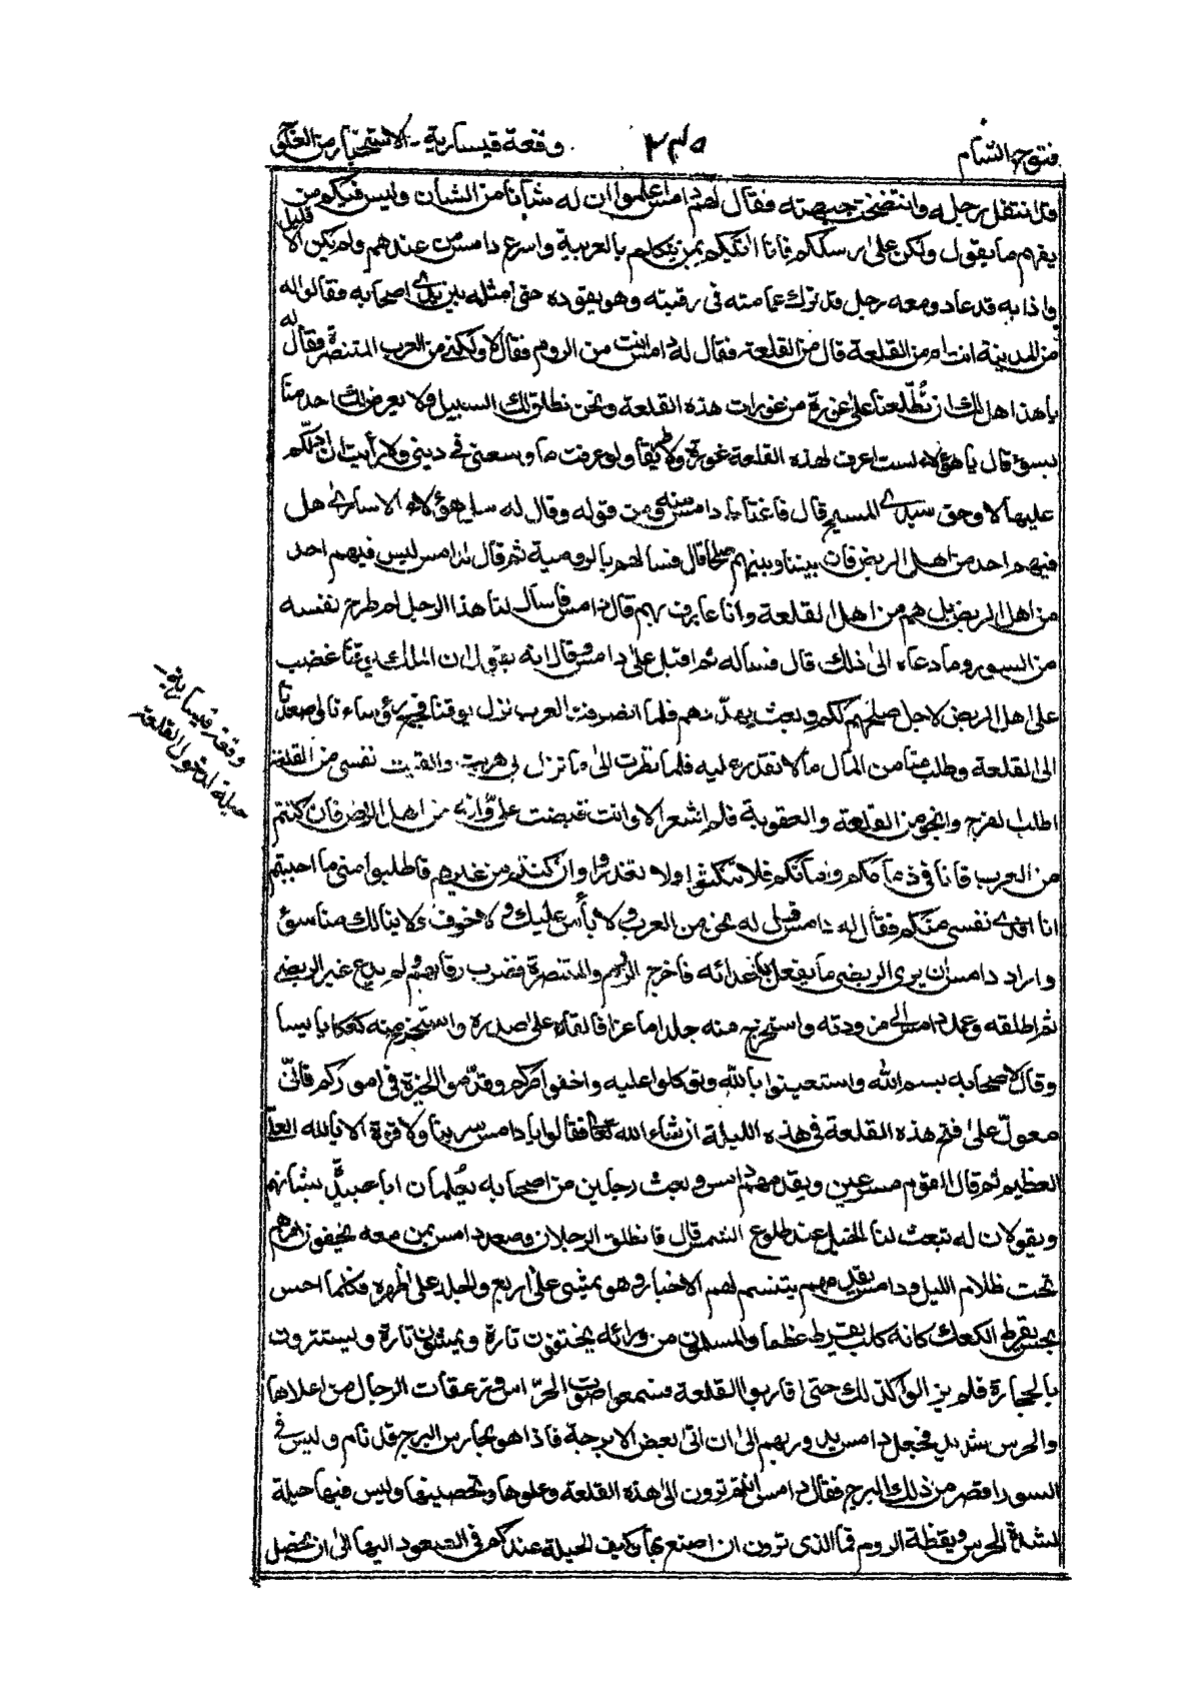 فتوح الشام
٢٣٥
وقعة قيسارية - الاستخبار من العلج
قد انتقل رجله وانتضخت جبهته فقال لهم دامس اعلموا ان له شأنا من الشان وليس فيكم من
يفهم ما يقول ولكن على رسلكم فانا اتيكم بمن يتكلم بالعربية واسرع دامس من عندهم ولم يكن الا قليل
واذا به قد عاد ومعه رجل قد ترك عمامته في رقبته وهو يقوده حتى امثله بين يدي اصحابه فقالوا له
من المدينة انت ام من القلعة قال من القلعة فقال له دامس انت من الروم فقال لا ولكني من العرب المتنصرة فقال له
يا هذا هل لك ان تُطّلعنا على عورة من عورات هذه القلعة ونحن نطلق لك السبيل ولا يعرض لك احد منا
بسوء قال يا هؤلاء لست اعرف لهذه القلعة عورة ولا طريقا ولو عرفت ما وسعني في ديني ولا رأيت ان ادلكم
عليها لا وحق سيدي المسيح قال فاغتاظ دامس منه ومن قوله وقال له سل هؤلاء الاسارى هل
فيهم احد من اهل الربض فان بيننا وبينهم صلحا قال فسالهم بالرومية ثم قال لدامس ليس فيهم احد
من اهل الربض بل هم من اهل القلعة وانا عارف بهم قال دامس فاسأل لنا هذا الرجل لم طرح نفسه
من السور وما دعاه الى ذلك قال فساله ثم اقبل على دامس وقال انه يقول ان الملك يوقنا غضب
على اهل الربض لاجل صلحهم لكم وبعث يهددهم فلما انصرفت العرب نزل يوقنا فجمع رؤساءنا واصعدنا
الى القلعة وطلب منا من المال ما لا نقدر عليه فلما نظرت الى ما نزل بي هربت والقيت نفسي من القلعة
اطلب الفرج وانجو من القلعة والعقوبة فلم اشعر الا وانت قبضت عليّ وانا من اهل الربض فان كنتم
من العرب فانا في ذمامكم وامانكم فلا تنكثوا ولا تغدروا وان كنتم من غيرهم فاطلبوا مني ما احببتم
انا افدي نفسي منكم فقال له دامس قل له نحن من العرب ولا بأس عليك ولا خوف ولا ينالك منا سوء
واراد دامس ان يرى الربضي ما يفعل باعدائه فاخرج الروم والمتنصرة فضرب رقابهم ولم يدع غير الربضي
ثم اطلقه وعمد دامس الى مزودته واستخرج منه جلد ماعز فالقاه على صدره واستخرج منه كعكا يابسا
وقال لاصحابه بسم الله واستعينوا بالله وتوكلوا عليه واخفوا امركم وقدموا الحزم في اموركم فانّي
معول على فتح هذه القلعة في هذه الليلة ان شاء الله تعالى فقالوا يا دامس سر بنا ولا قوة الا بالله العلي
العظيم ثم قال القوم مسرعين ويقدمهم دامس وبعث رجلين من اصحابه يُعلمان ابا عبيدة بشانهم
ويقولان له تبعث لنا الخيل عند طلوع الشمس قال فانطلق الرجلان وصعد دامس بمن معه يخفون امرهم
تحت ظلام الليل ودامس يقدمهم يتنسم لهم الاخبار وهو يمشي على اربع والجلد على ظهره فكلما احس
بحس يقرط الكعك كانه كلب يقرط عظما والمسلمون من ورائه يختفون تارة ويمشون تارة ويستترون
بالحجارة فلم يزالوا كذلك حتى قاربوا القلعة فسمعوا صوت الحراس وزعقات الرجال من اعلاها
والحرس شديد فجعل دامس يدور بهم الى ان اتى بعض الابرجة فاذا هو بحارس البرج قد نام وليس في
السور اقصر من ذلك البرج فقال دامس انتم ترون الى هذه القلعة وعلوها وتحصينها وليس فيها حيلة
لشدة الحرس ويقظة الروم فما الذي ترون ان اصنع بها وكيف الحيلة عندكم في الصعود اليها الى ان نحصل
وقعة قيسارية -
حيلة لدخول القلعة